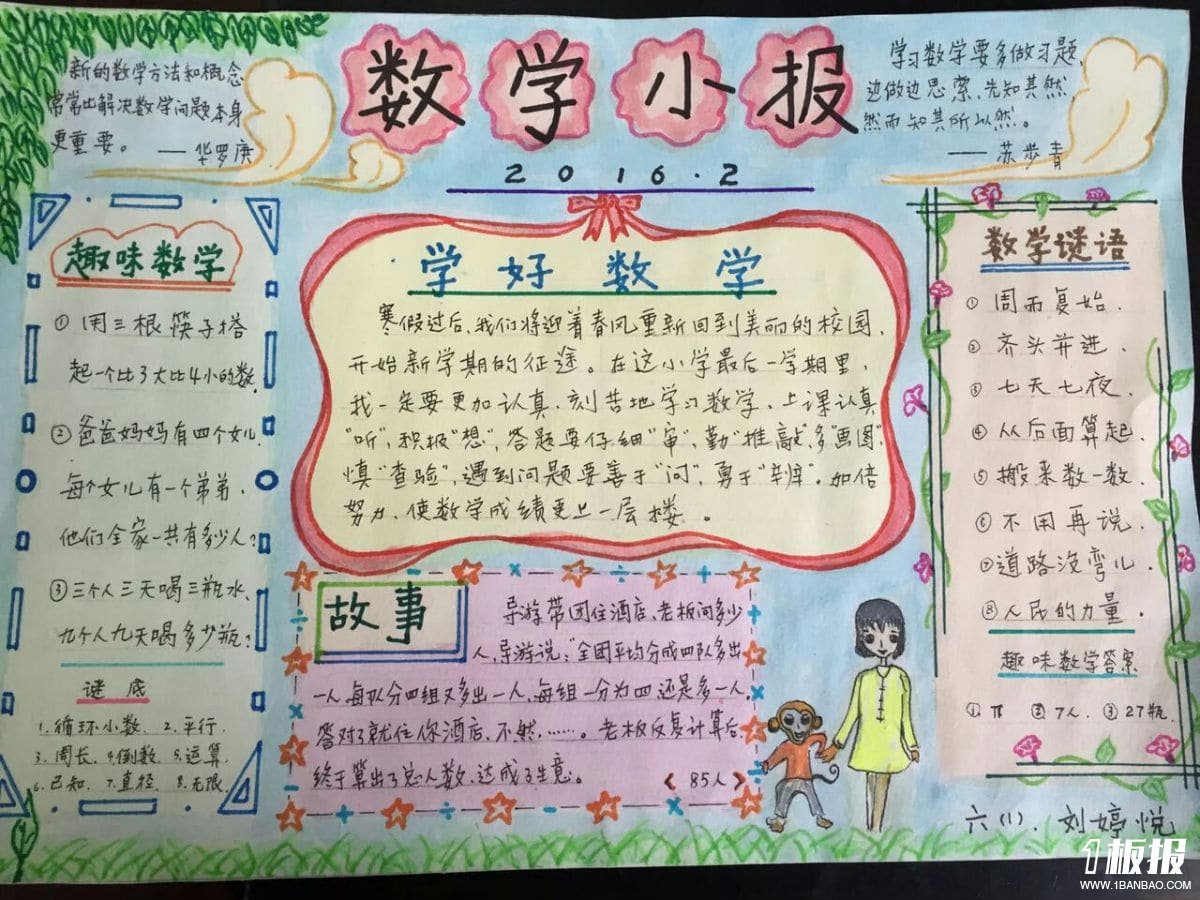 数学小报
2016.2
新的数学方法和概念
常常比解决数学问题本身
更重要。 ——华罗庚
学习数学要多做习题,
边做边思索,先知其然,
然而知其所以然。
——苏步青
趣味数学
①用三根筷子搭
起一个比3大比4小的数.
②爸爸妈妈有四个女儿.
每个女儿有一个弟弟.
他们全家一共有多少人?
③三个人三天喝三瓶水.
九个人九天喝多少瓶?
谜底
1.循环小数. 2.平行.
3.周长. 4.倒数. 5.运算.
6.已知. 7.直径. 8.无限.
学好数学
寒假过后,我们将迎着春风重新回到美丽的校园,
开始新学期的征途。在这小学最后一学期里,
我一定要更加认真、刻苦地学习数学,上课认真
"听",积极"想",答题要仔细"审",勤"推敲",多"画图"
慎"查验",遇到问题要善于"问",勇于"辩"。如倍
努力、使数学成绩更上一层楼。
故事
导游带团住酒店,老板问多少
人,导游说:"全团平均分成四队多出
一人,每队分四组又多出一人,每组一分为四还是多一人.
答对了就住你酒店,不然,……。老板反复计算后,
终于算出了总人数,达成了生意。 《85人》
数学谜语
①周而复始.
②齐头并进.
③七天七夜.
④从后面算起.
⑤搬来数一数.
⑥不用再说.
⑦道路没弯儿.
⑧人民的力量.
趣味数学答案
①.π ②7人. ③27瓶.
六(1). 刘婷悦
1板报
WWW.1BANBAO.COM